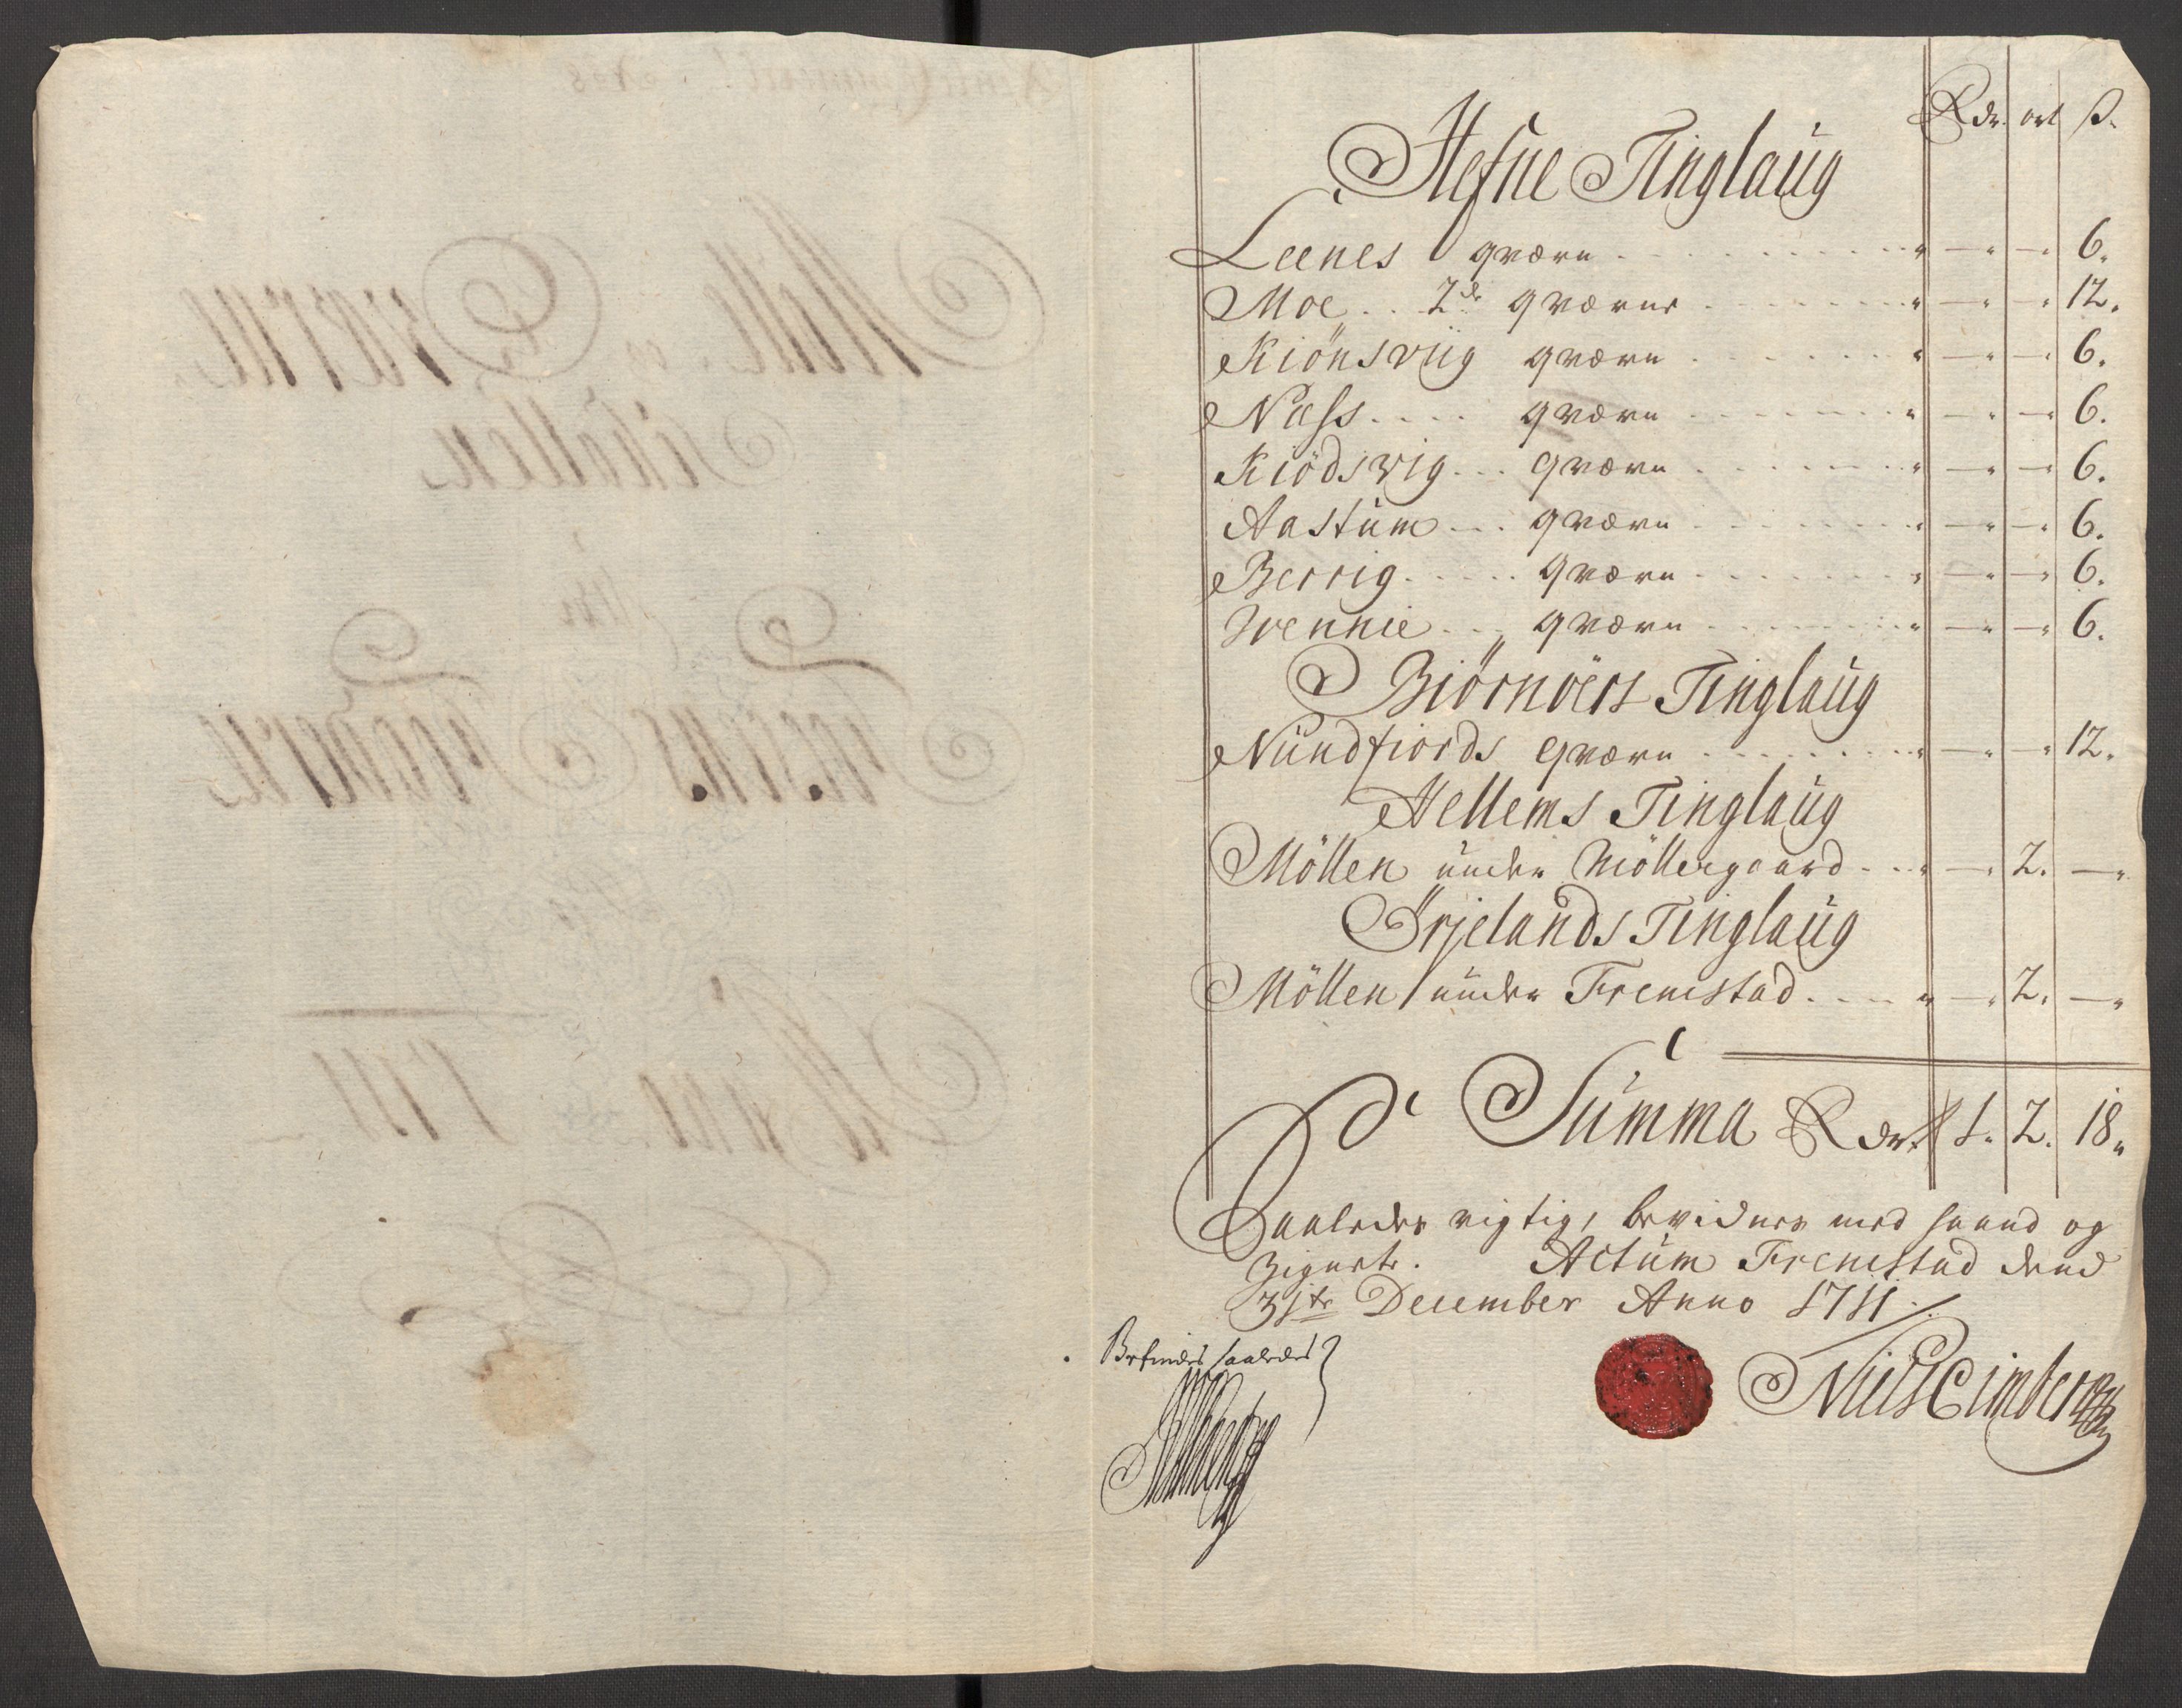 Rdr. ort ß.
Hefne Tinglaug
Leenes qværn . . . . . . . . . . " — " — " 6.
Moe . . 2de qværne . . . . . . . " — " — " 12.
Kiönsviig qværn . . . . . . . " — " — " 6.
Næss . . . . qværn . . . . . . . " — " — " 6.
Kiödsvig . . . qværn . . . . . . . " — " — " 6.
Aastum . . . qværn . . . . . . . " — " — " 6.
Berrig . . . . . qværn . . . . . . . " — " — " 6.
Wennie . . . qværn . . . . . . . " — " — " 6.
Biörnöers Tinglaug
Nundfiords qværn . . . . . . . " — " — " 12.
Hellems Tinglaug
Möllen under Möllergaard . . . " — " 2. — "
Örjelands Tinglaug
Möllen under Fremstad . . . . " — " 2. — "
Summa Rdr. 1. 2. 18.
Saaledes rigtig, bevidnes med haand og
Zignete. Actum Fremstad dend
31te December Anno 1711.
Befindes saaledes
Niels Cimber